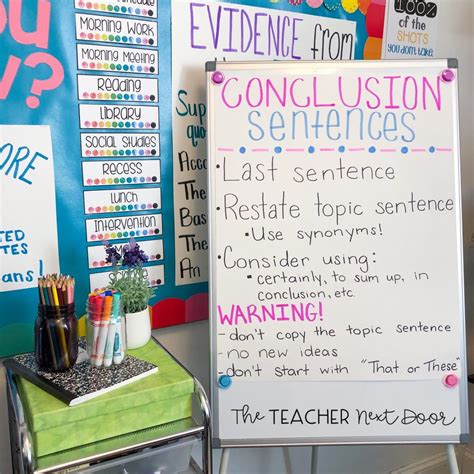 100%
of the
SHOTS
you don't take.
YOU
?
Morning Work
Morning Meeting
Reading
Library
Social Studies
Recess
Lunch
Intervention
EVIDENCE from
ORE
CONCLUSION
sentences
•Last sentence
•Restate topic sentence
•Use synonyms!
•Consider using:
•certainly, to sum up, in
conclusion, etc.
WARNING!
-don't copy the topic sentence
-no new ideas
-don't start with "That or These"
The TEACHER Next Door